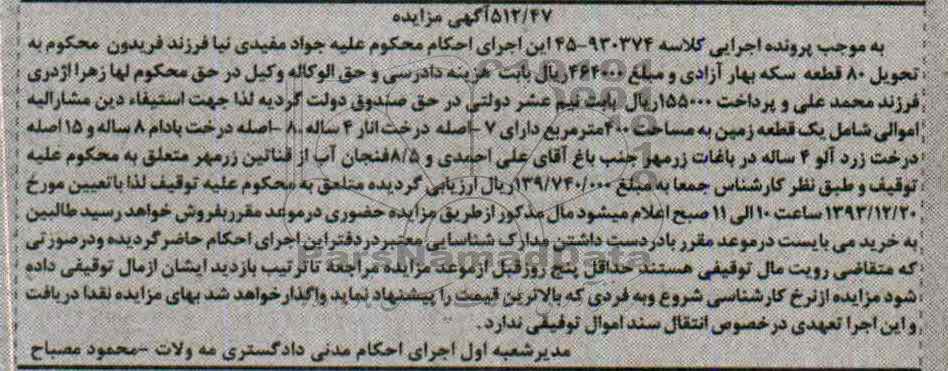 ۵۱۲/۴۷آگهی مزایده
به موجب پرونده اجرایی کلاسه ۹۳۰۳۷۴-۴۵ این اجرای احکام محکوم علیه جواد مفیدی نیا فرزند فریدون محکوم به
تحویل ۸۰ قطعه سکه بهار آزادی و مبلغ ۴۶۴۰۰۰ریال بابت هزینه دادرسی و حق الوکاله وکیل در حق محکوم لها زهرا اژدری
فرزند محمد علی و پرداخت ۱۵۵۰۰۰ریال بابت نیم عشر دولتی در حق صندوق دولت گردیه لذا جهت استیفاء دین مشارالیه
اموالی شامل یک قطعه زمین به مساحت ۴۰۰مترمربع دارای ۷ -اصله درخت انار ۴ ساله ۸۰ -اصله درخت بادام ۸ ساله و ۱۵ اصله
درخت زرد آلو ۴ ساله در باغات زرمهر جنب باغ آقای علی احمدی و ۸/۵فنجان آب از قناتین زرمهر متعلق به محکوم علیه
توقیف و طبق نظر کارشناس جمعا به مبلغ ۱۳۹/۷۴۰/۰۰۰ریال ارزیابی گردیده متلعق به محکوم علیه توقیف لذا باتعیین مورخ
۱۳۹۳/۱۲/۲۰ ساعت ۱۰ الی ۱۱ صبح اعلام میشود مال مذکور ازطریق مزایده حضوری درموعد مقرربفروش خواهد رسید طالبین
به خرید می بایست درموعد مقرر بادردست داشتن مدارک شناسایی معتبر دردفتراین اجرای احکام حاضرگردیده ودرصورتی
که متقاضی رویت مال توقیفی هستند حداقل پنج روزقبل ازموعد مزایده مراجعه تاترتیب بازدید ایشان ازمال توقیفی داده
شود مزایده ازنرخ کارشناسی شروع وبه فردی که بالاترین قیمت را پیشنهاد نماید واگذارخواهد شد بهای مزایده نقدا دریافت
و این اجرا تعهدی درخصوص انتقال سند اموال توقیفی ندارد .
مدیرشعبه اول اجرای احکام مدنی دادگستری مه ولات -محمود مصباح
ParsNamadData